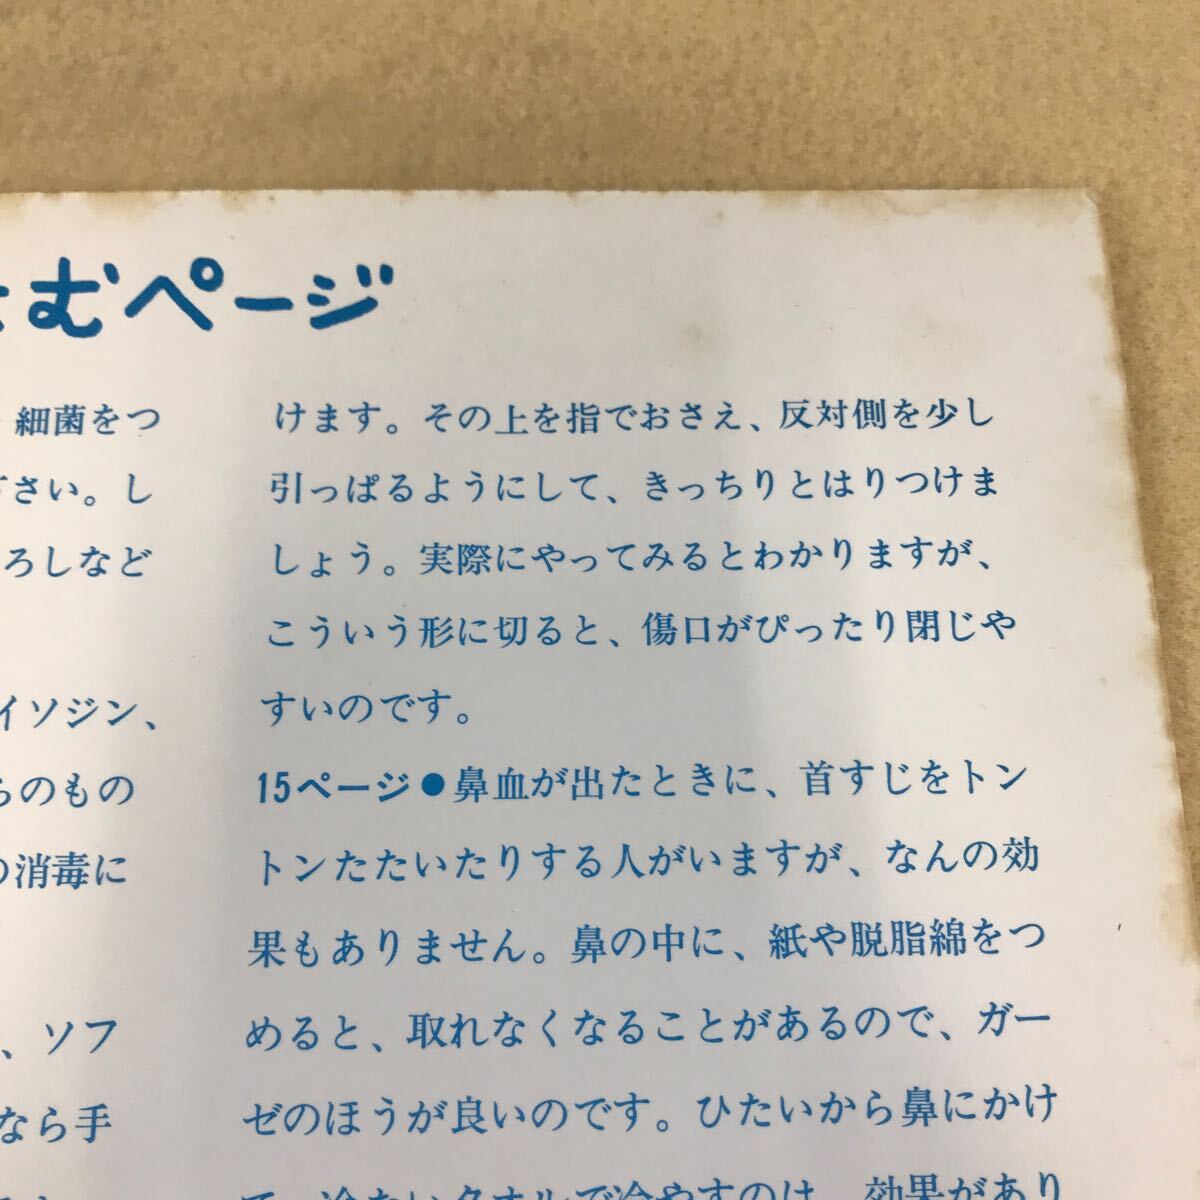 むページ
細菌をつ
さい。し
ろしなど
イソジン、
らのもの
の消毒に
、ソフ
なら手
けます。その上を指でおさえ、反対側を少し
引っぱるようにして、きっちりとはりつけま
しょう。実際にやってみるとわかりますが、
こういう形に切ると、傷口がぴったり閉じや
すいのです。
15ページ●鼻血が出たときに、首すじをトン
トンたたいたりする人がいますが、なんの効
果もありません。鼻の中に、紙や脱脂綿をつ
めると、取れなくなることがあるので、ガー
ゼのほうが良いのです。ひたいから鼻にかけ
て、冷たいタオルで冷やすのは、効果があり